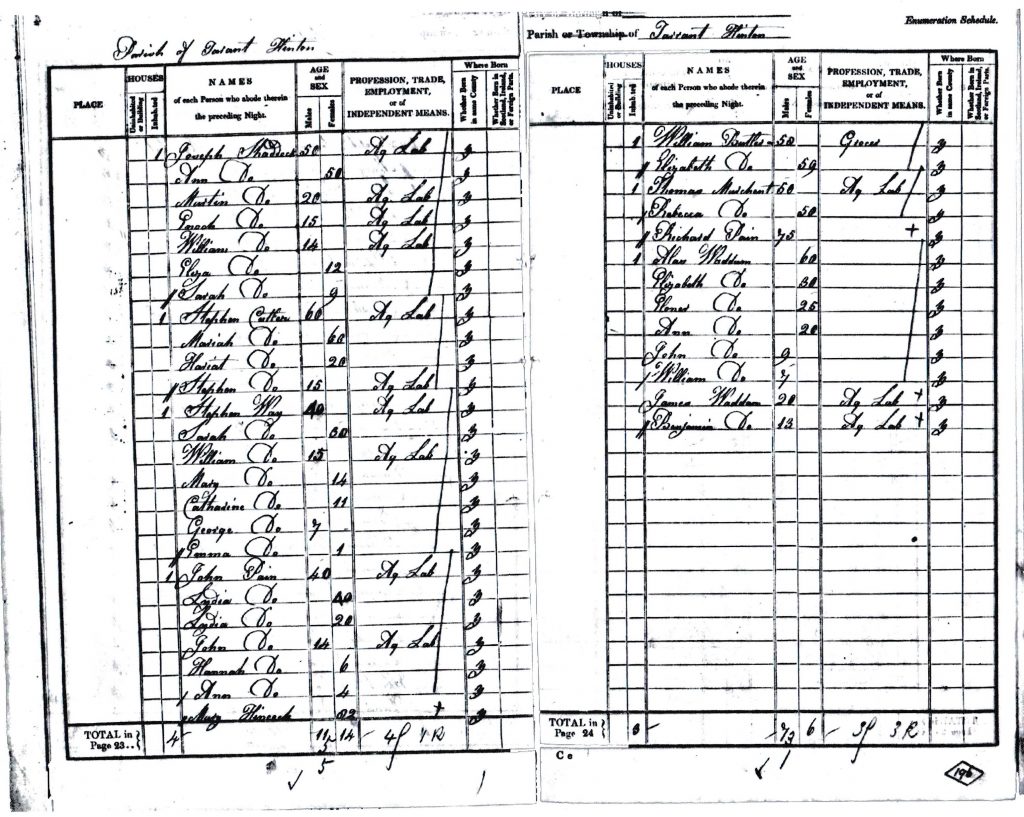 Parish of Tarrant Hinton
PLACE
HOUSES
Uninhabited or Building
Inhabited
NAMES
of each Person who abode therein the preceding Night.
AGE and SEX
Males
Females
PROFESSION, TRADE, EMPLOYMENT, or of INDEPENDENT MEANS.
Where Born
Whether Born in same County
Whether Born in Scotland, Ireland, or Foreign Parts.
1 Joseph 50 Ag Lab y
Ann Do 50 y
Martin Do 20 Ag Lab y
Enoch Do 15 Ag Lab y
William Do 14 Ag Lab y
Eliza Do 12 y
Sarah Do 9 y
1 Stephen 60 Ag Lab y
Mariah Do 60 y
Hariat Do 20 y
Stephen Do 15 Ag Lab y
1 Stephen Way 40 Ag Lab y
Sarah Do 30 y
William Do 15 Ag Lab y
Mary Do 14 y
Catharine Do 11 y
George Do 7 y
Emma Do 1 y
1 John Pain 40 Ag Lab y
Lydia Do 40 y
Lydia Do 20 y
John Do 14 Ag Lab y
Hannah Do 6 y
Ann Do 4 y
Mary + y
TOTAL in Page 23.. 4 11 14
5
Enumeration Schedule.
Parish or Township of Tarrant Hinton
PLACE
HOUSES
Uninhabited or Building
Inhabited
NAMES
of each Person who abode therein the preceding Night.
AGE and SEX
Males
Females
PROFESSION, TRADE, EMPLOYMENT, or of INDEPENDENT MEANS.
Where Born
Whether Born in same County
Whether Born in Scotland, Ireland, or Foreign Parts.
1 William Butler 50 Grocer y
Elizabeth Do 59 y
1 Thomas Merchent 50 Ag Lab y
Rebecca Do 50 y
Richard Pain 75 + y
1 Waddam 60 y
Elizabeth Do 30 y
Do 25 y
Ann Do 20 y
John Do 9 y
William Do 7 y
James Waddam 20 Ag Lab + y
Benjamin Do 13 Ag Lab + y
TOTAL in Page 24 3 7 6
C c
196